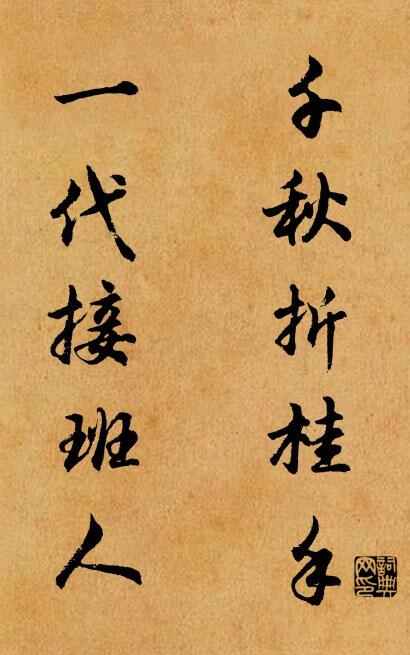 千秋折桂手
一代接班人
詞典網印